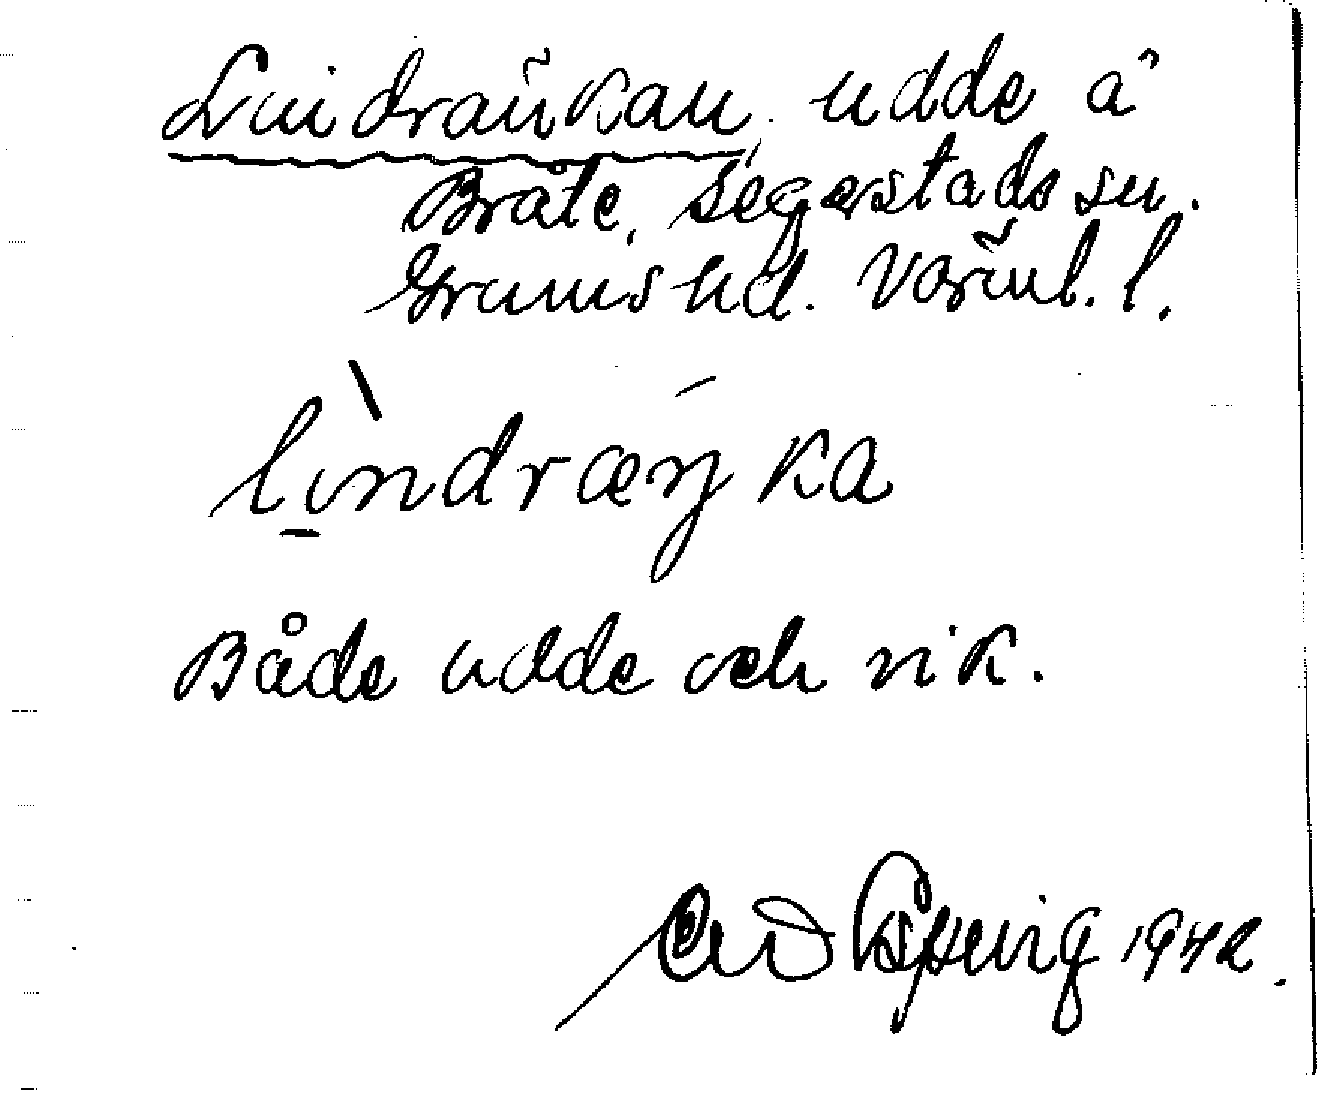 Lindränkan, udde å
Bråte, Segerstads sn.
Grums hd. Värml. l.
lìndræŋka
Både udde och vik.
1942.